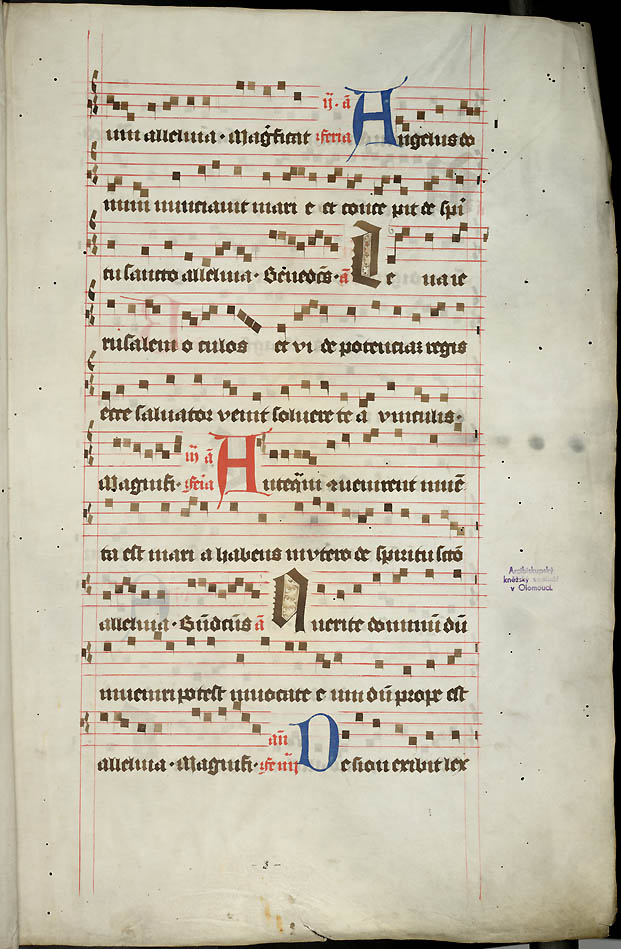 um alleluia · Magnificat · feria ij · a Angelus do
mini nunciavit mari e et conce pit de spi
ritu sancto alleluia · Benedcs · a Le va ie
rusalem o culos et vi de potenciaz regis
ecce salvator venit solvere te a vinculis ·
Magnifi · feria iij a Anteqm quenirent inve
ta est mari a habens in utero de spiritu scto
alleluia · Bndcus a Querite dominu du
inveniri potest invocate e um du prope est
alleluia · Magnifi · fe iiij an De sion exibit lex
Arcibiskupský
kněžský seminář
v Olomouci.